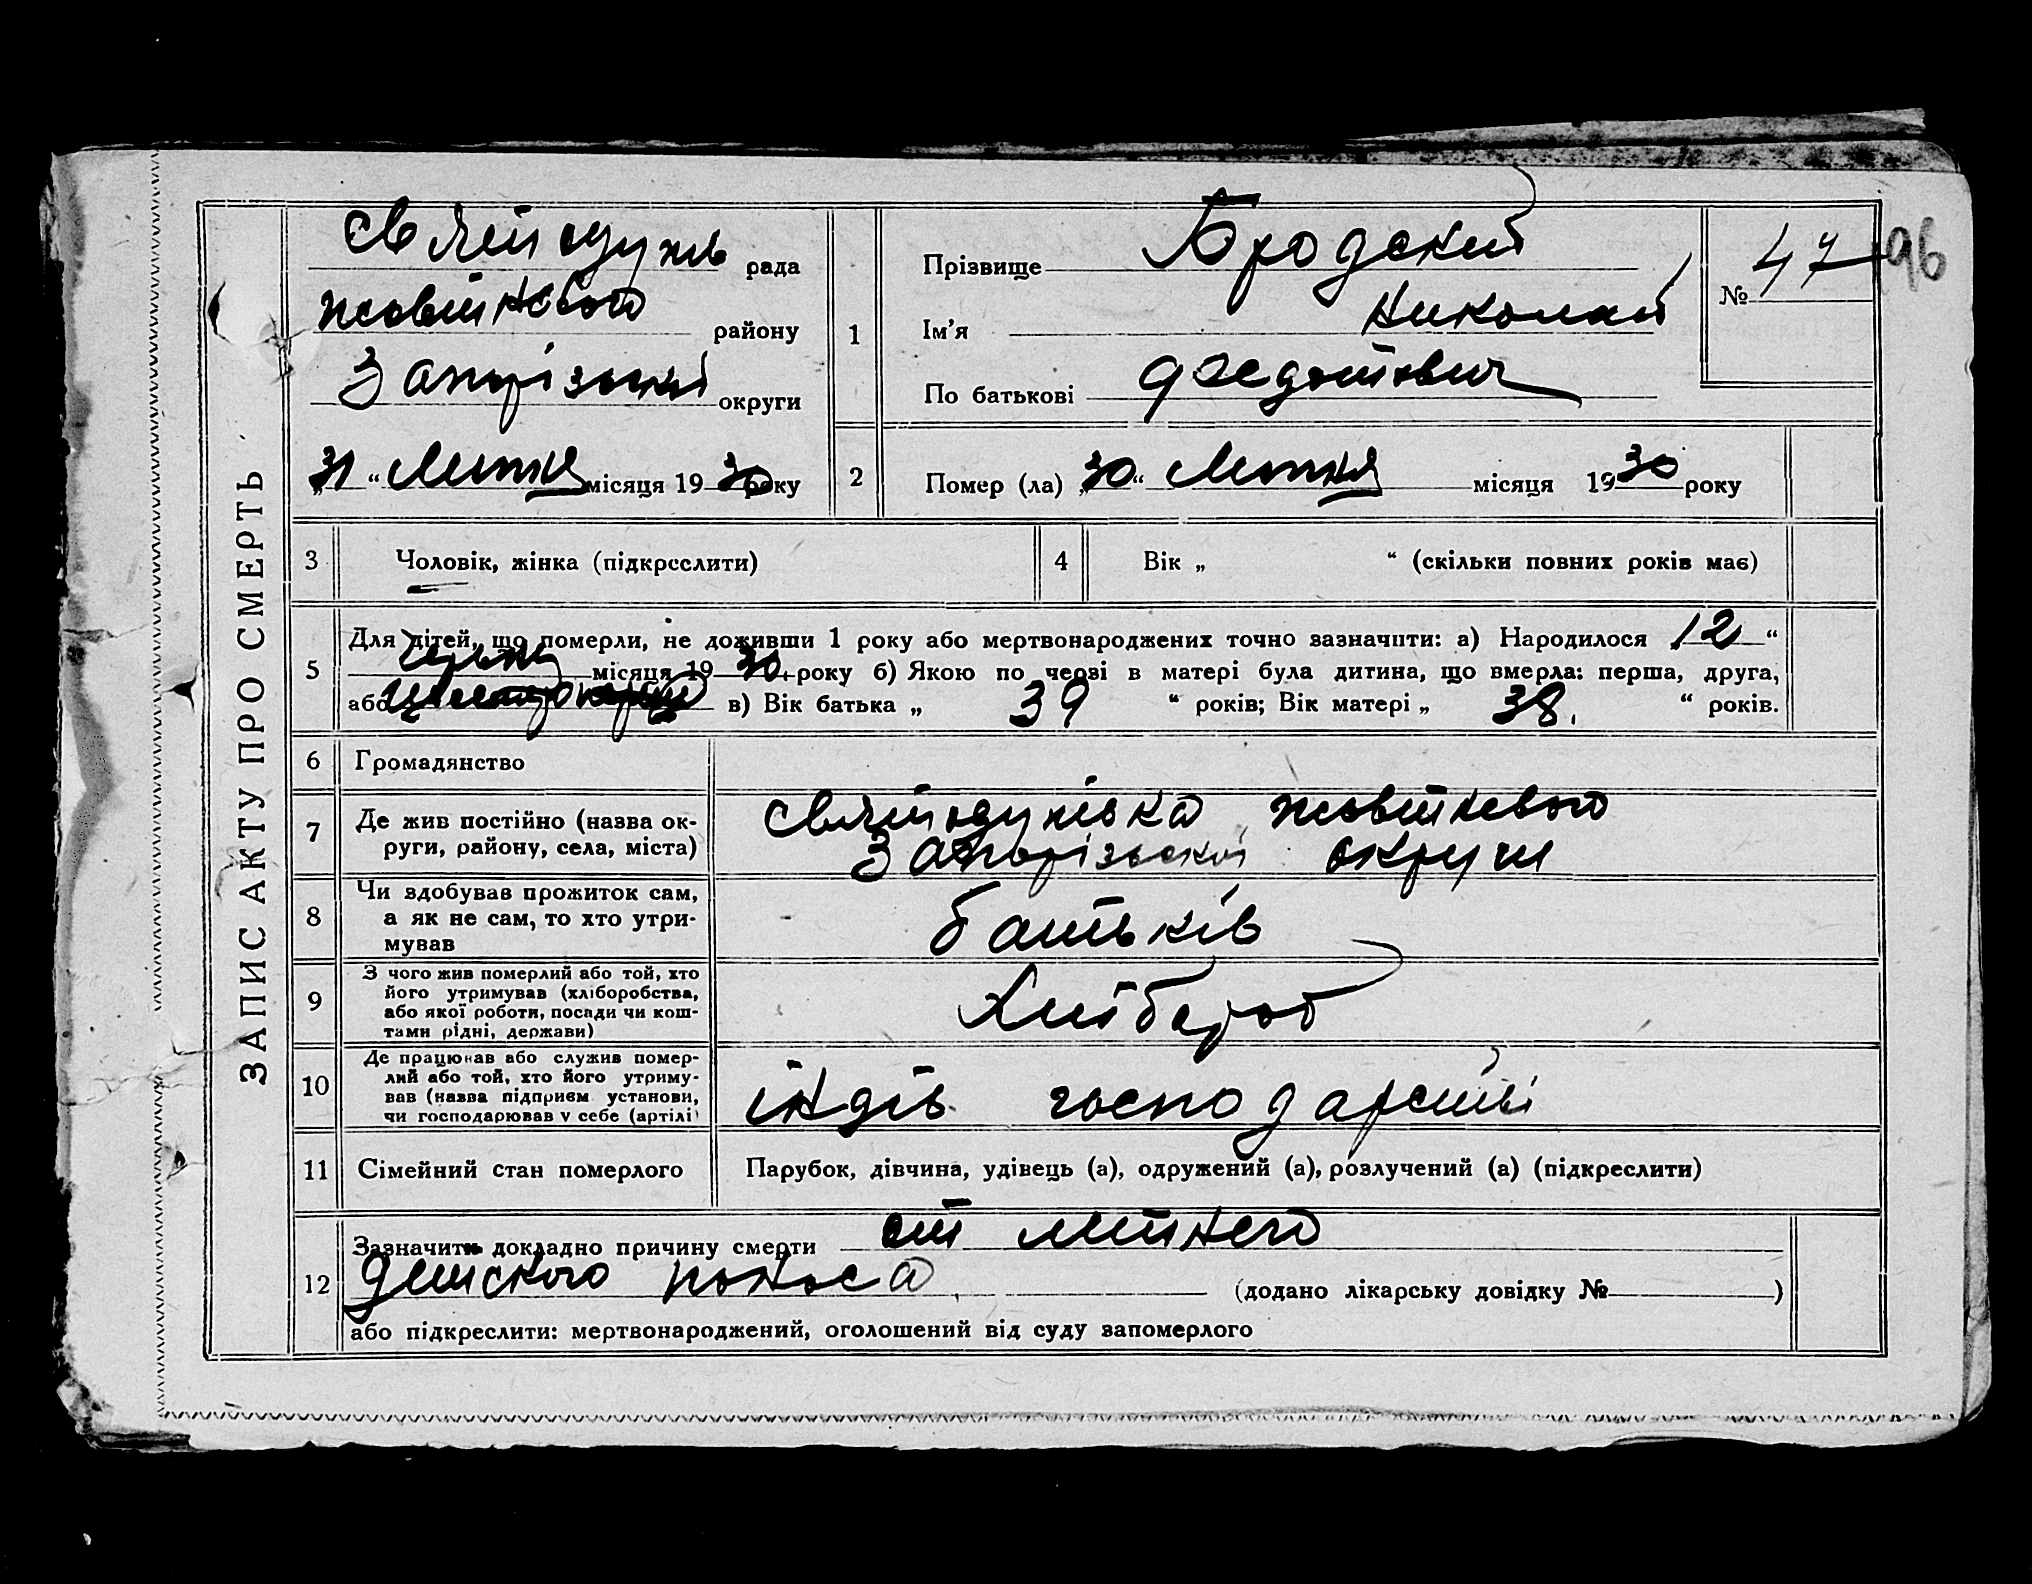 ЗАПИС АКТУ ПРО СМЕРТЬ
рада
Жовтневого району
Запорізької округи
„31“ Липня місяця 1930 року
1
Прізвище Бродский
Ім’я Николай
По батькові Федотович
№ 47
96
2
Помер (ла) „30“ Липня місяця 1930 року
3 Чоловік, жінка (підкреслити)
4 Вік „ “ (скільки повних років має)
5
Для дітей, що померли, не доживши 1 року або мертвонароджених точно зазначити: а) Народилося 12 “
місяця 1930 року б) Якою по черзі в матері була дитина, що вмерла: перша, друга,
або в) Вік батька „ 39 “ років; Вік матері „ 38. “ років.
6 Громадянство
7 Де жив постійно (назва ок-
руги, району, села, міста)
Жовтневого
Запорізької округи
8 Чи здобував прожиток сам,
а як не сам, то хто утри-
мував
батьків
9 З чого жив померлий або той, хто
його утримував (хліборобства,
або якої роботи, посади чи кош-
тами рідні, держави)
Хлібороб
10 Де працював або служив помер-
лий або той, хто його утриму-
вав (назва підприєм установи,
чи господарював у себе (артілі)
індів. господарстві
11 Сімейний стан померлого
Парубок, дівчина, удівець (а), одружений (а), розлучений (а) (підкреслити)
12
Зазначить докладно причину смерти от летнего
детского поноса (додано лікарську довідку № )
або підкреслити: мертвонароджений, оголошений від суду запомерлого